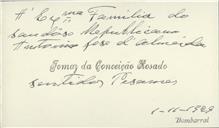 A' Exma Familia do
saudoso Republicano
Antonio José d'Almeida
Tomaz da Conceição Rosado
sentidos Pesames
1-11-1929
Bombarral